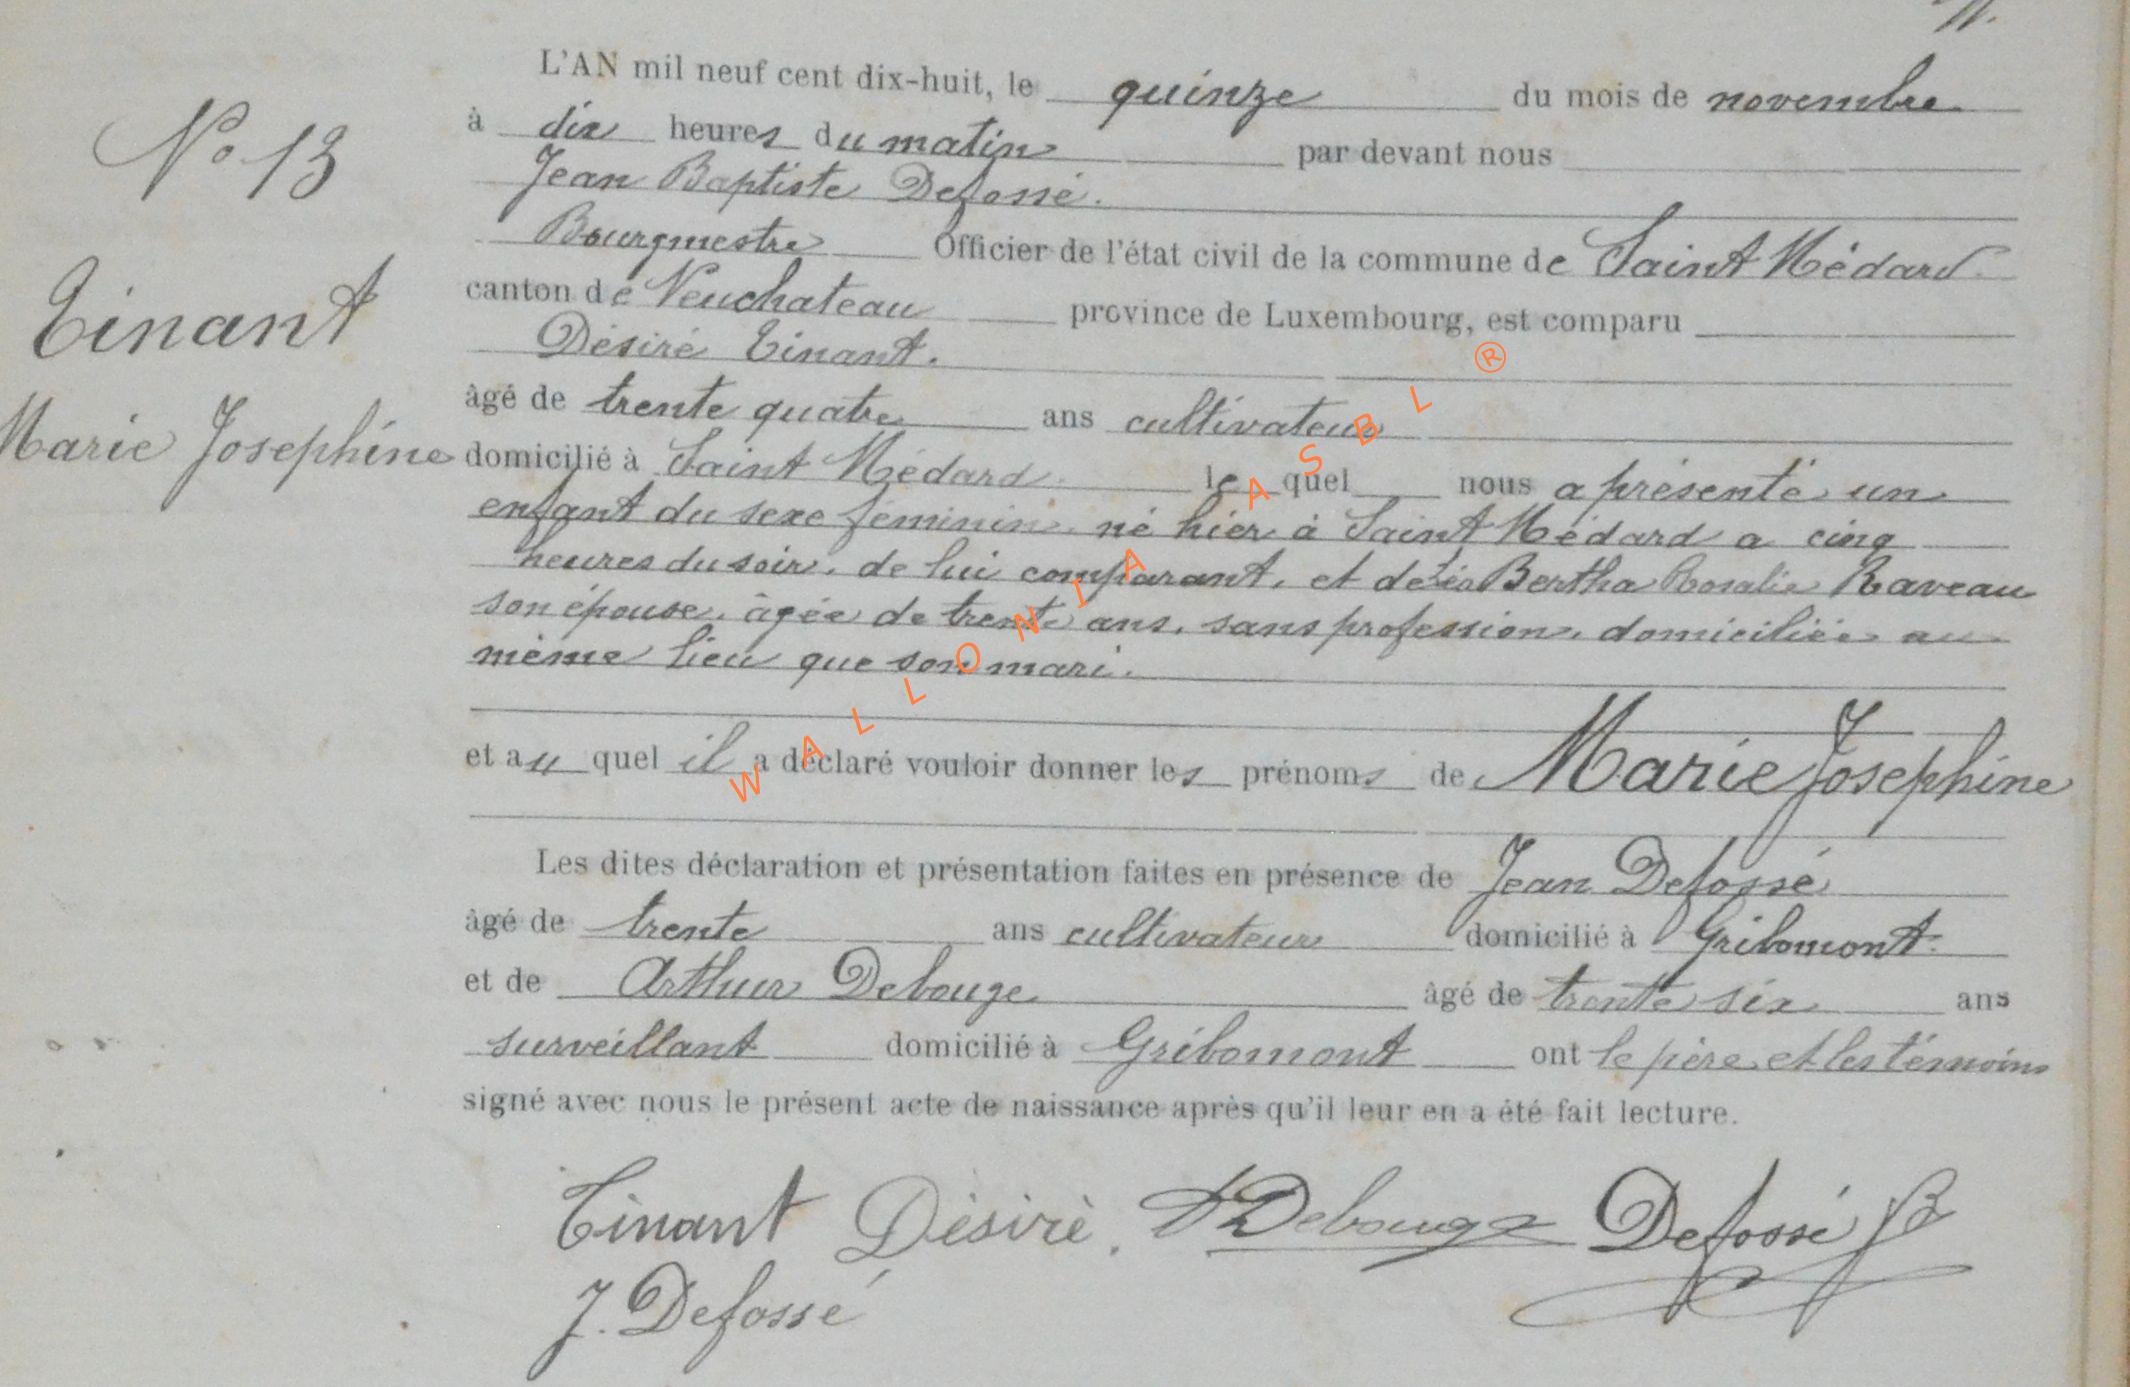 L'AN mil neuf cent dix-huit, le quinze du mois de novembre
à dix heures du matin par devant nous
Jean Baptiste Defossé.
Bourgmestre Officier de l'état civil de la commune de Saint Médard
canton de Neuchateau province de Luxembourg, est comparu
Désiré Tinant.
âgé de trente quatre ans cultivateur
domicilié à Saint Médard. lequel nous a présenté un
enfant du sexe féminin né hier à Saint Médard a cinq
heures du soir, de lui comparant, et de Bertha Rosalie Raveau
son épouse, âgée de trente ans, sans profession, domiciliée au
même lieu que son mari.
et au quel il a déclaré vouloir donner les prénoms de Marie Josephine
Les dites déclaration et présentation faites en présence de Jean Defossé
âgé de trente ans cultivateur domicilié à Gribomont.
et de Arthur Debouge âgé de trente six ans
surveillant domicilié à Gribomont ont le père et les témoins
signé avec nous le présent acte de naissance après qu'il leur en a été fait lecture.
Tinant Désirè. A Debouge Defossé JB
J. Defossé
No 13
Tinant
Marie Josephine
WALLONIA ASBL ®